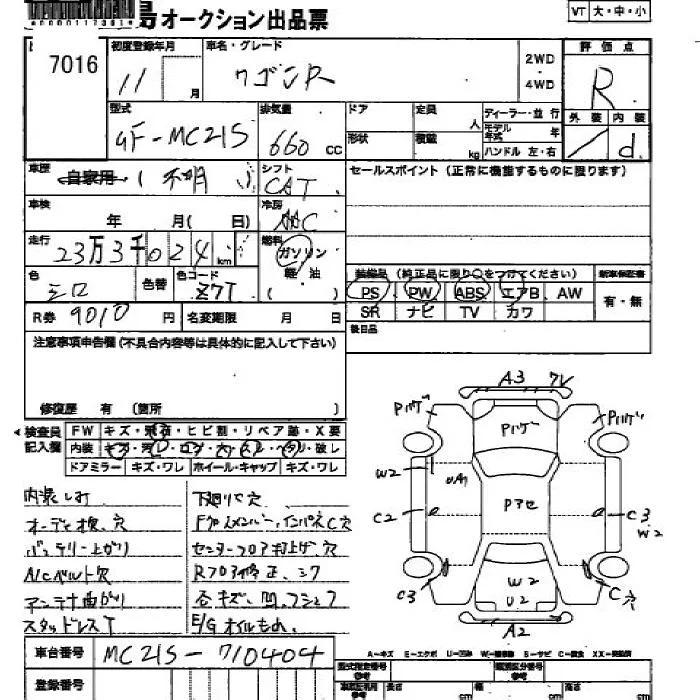 島オークション出品票
VT 大・中・小
7016
初度登録年月 11 月
車名・グレード ワゴンR
2WD
4WD
評価点 R
型式 GF-MC21S
排気量 660 cc
ドア
定員 人
形状
積載 kg
ディーラー・並行
モデル年式 年
ハンドル 左・右
外装 内装
／ d
車歴 自家用 ( 不明 )
シフト CAT
セールスポイント (正常に機能するものに限ります)
車検 年 月( 日)
冷房 AAC
走行 23万3千024 km
燃料 ガソリン
軽・油
( )
色 シロ
色替
色コード Z7T
装備品 (純正品に限り○をつけてください)
新車保証書
PS PW ABS エアB AW
SR ナビ TV カワ
有・無
R券 9010 円
名変期限 月 日
後日品
注意事項申告欄 (不具合内容等は具体的に記入して下さい)
修復歴 有 (箇所
検査員記入欄
FW キズ・飛石・ヒビ割・リペア跡・X要
内装
ドアミラー キズ・ワレ ホイール・キャップ キズ・ワレ
内装しみ
オーディオ検、穴
バッテリー上がり
A/Cベルト欠
アンテナ曲がり
スタッドレスT
下廻りサビ穴
センターフロア打上げ穴
Rフロア修正、シワ
E/Gオイルもれ
A3 ワレ
Pハゲ
Pハゲ
Pハゲ
W2
UA1
C2
Pアセ
C3
W2
C3
W2
U2
C穴
A2
A-キズ E-エクボ U-凹み W-補修跡 S-サビ C-腐食 XX-交換済
車台番号 MC21S-710404
登録番号
型式指定番号
類別区分番号
長さ cm
幅 cm
高さ cm